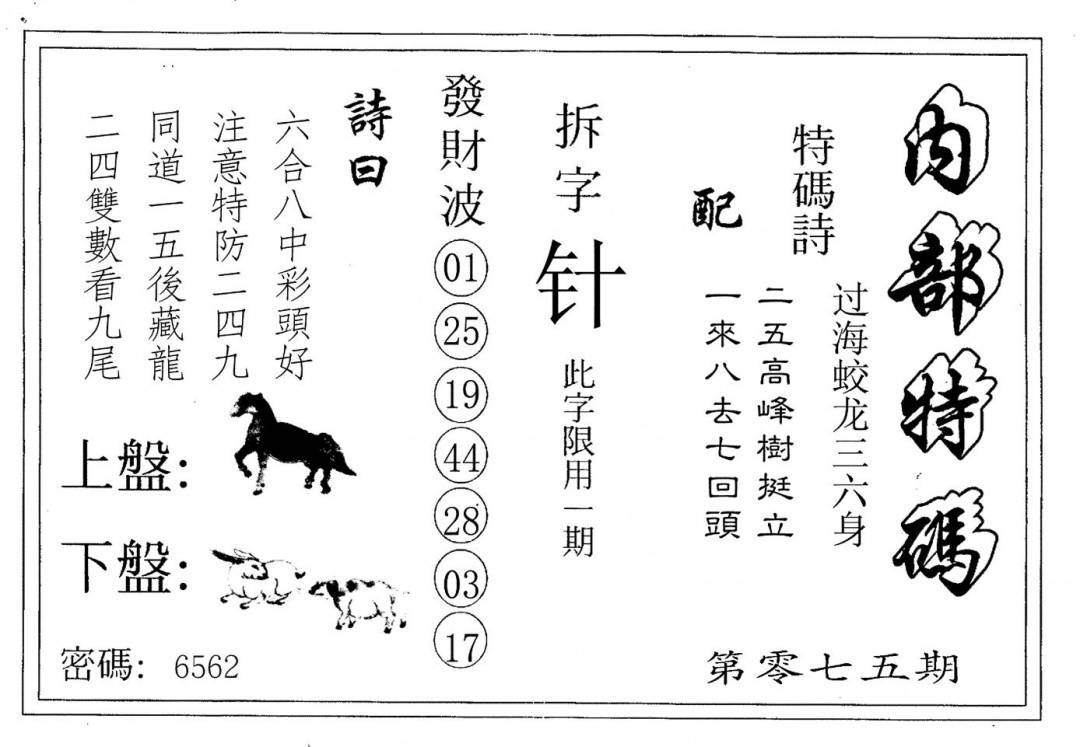 内部特碼
特碼詩
过海蛟龙三六身
配
二五高峰樹挺立
一來八去七回頭
第零七五期
拆字
针
此字限用一期
發財波
01
25
19
44
28
03
17
詩曰
六合八中彩頭好
注意特防二四九
同道一五後藏龍
二四雙數看九尾
上盤：
下盤：
密碼： 6562